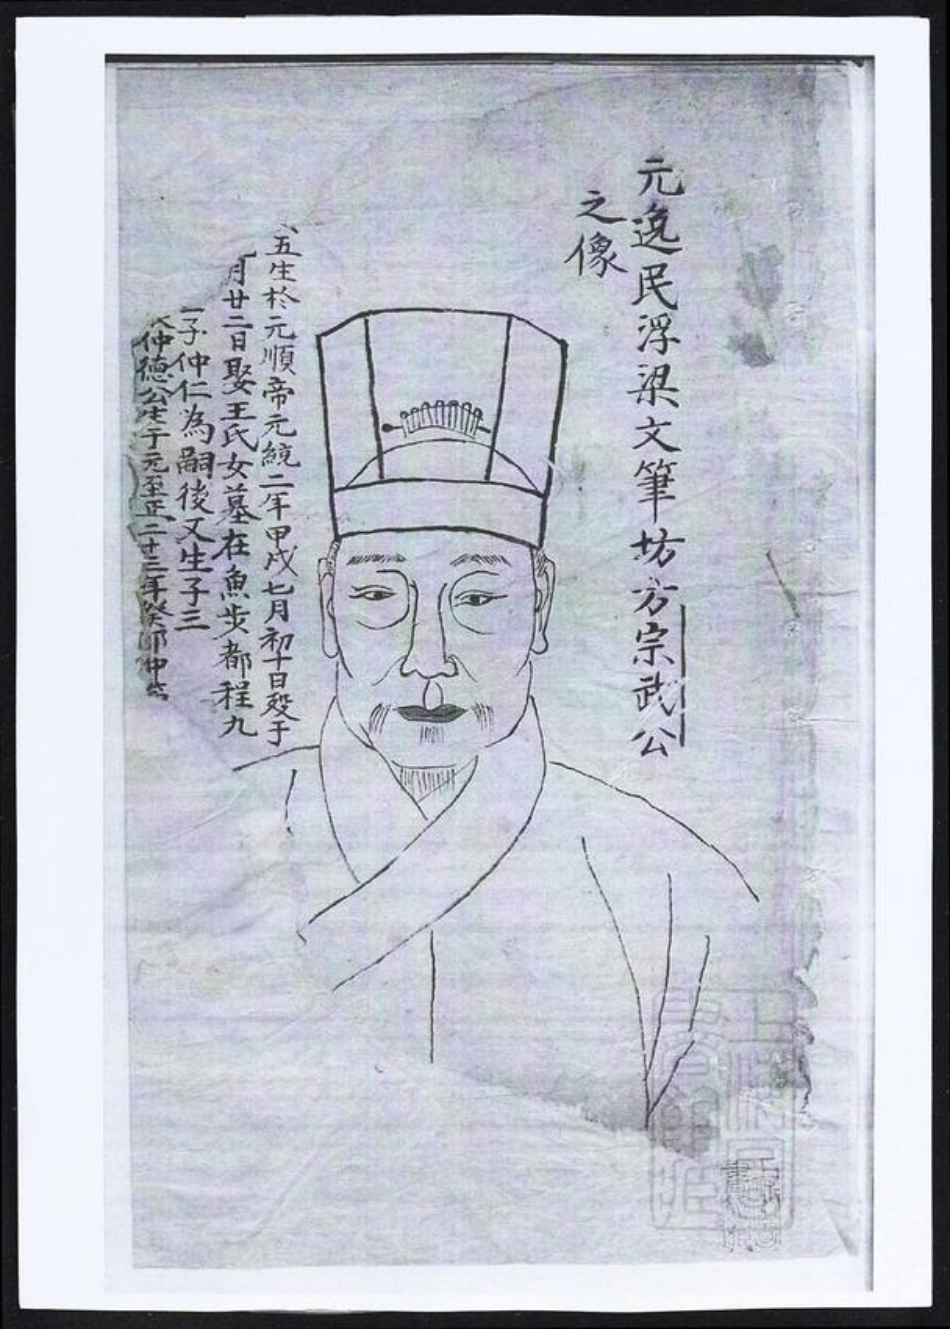 元逸民浮梁文筆坊方宗武公
之像
五生於元順帝元統二年甲戌七月初十日歿于
月廿二日娶王氏女墓在魚步都程九
子仲仁為嗣後又生子三
仲德公生于元至正二十三年癸卯仲